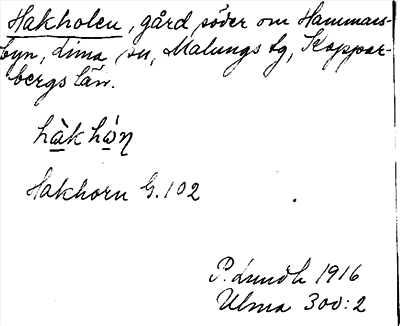 Hakholen, gård söder om Hammars-
byn, Lima sn, Malungs tg, Koppar-
bergs län.
hàk hón
Hakhorn G. 102
P. Lundh 1916
Ulma 300:2